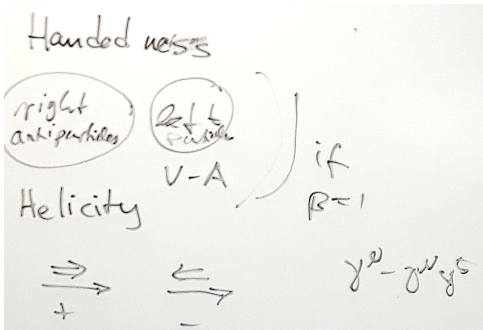 Handedness
right
antiparticles
left
particles
V-A
if
β=1
Helicity
+
-
γ^μ - γ^μ γ^5